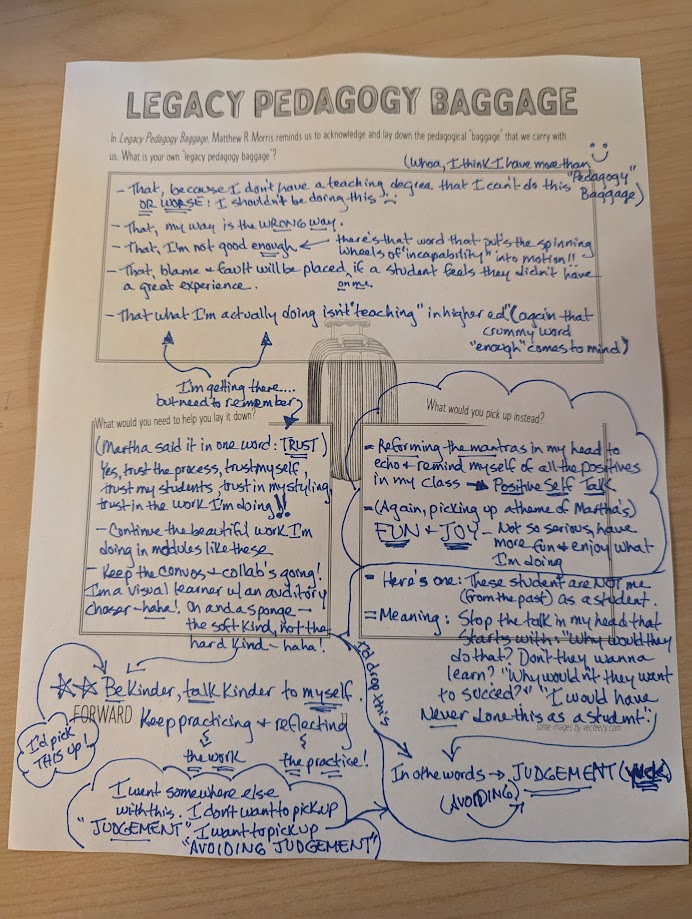 LEGACY PEDAGOGY BAGGAGE
In Legacy Pedagogy Baggage, Matthew R Morris reminds us to acknowledge and lay down the pedagogical "baggage" that we carry with
us. What is your own "legacy pedagogy baggage"?
(Whoa, I think I have more than
"Pedagogy"
Baggage)
- That, because I don't have a teaching degree that I can't do this
OR WORSE: I shouldn't be doing this
- That, my way is the WRONG way.
- That, I'm not good enough ← there's that word that put's the spinning
wheels of "incapability" into motion!!
- That, blame + fault will be placed, if a student feels they didn't have
on me
a great experience.
- That what I'm actually doing isn't "teaching" in higher ed" (again that
crummy word
"enough" comes to mind)
I'm getting there...
but need to remember
What would you need to help you lay it down?
(Martha said it in one word: TRUST)
Yes, trust the process, trust myself,
trust my students, trust in my styling,
trust in the work I'm doing!!
- Continue the beautiful work I'm
doing in modules like these
- Keep the convos + collab's going!
I'm a visual learner w/ an auditory
chaser - haha! Oh and a sponge -
the soft kind, not the
hard kind - haha!
What would you pick up instead?
= Reforming the mantras in my head to
echo + remind myself of all the positives
in my class → Positive Self Talk
= (Again, picking up a theme of Martha's)
FUN + JOY - Not so serious, have
more fun + enjoy what
I'm doing
= Here's one: These student are NOT me
(from the past) as a student.
= Meaning: Stop the talk in my head that
starts with: "Why would they
do that? Don't they wanna
learn? "Why wouldn't they want
to succed?" "I would have
Never done this as a student".
some images by vecteezy.com
I'd drop this
In other words → JUDGEMENT (yuck)
(AVOIDING)
☆☆ Be Kinder, talk Kinder to myself.
FORWARD Keep practicing + reflecting
the work the practice!
I'd pick
THIS up!
I went somewhere else
with this. I don't want to pick up
"JUDGEMENT" I want to pick up
"AVOIDING JUDGEMENT")